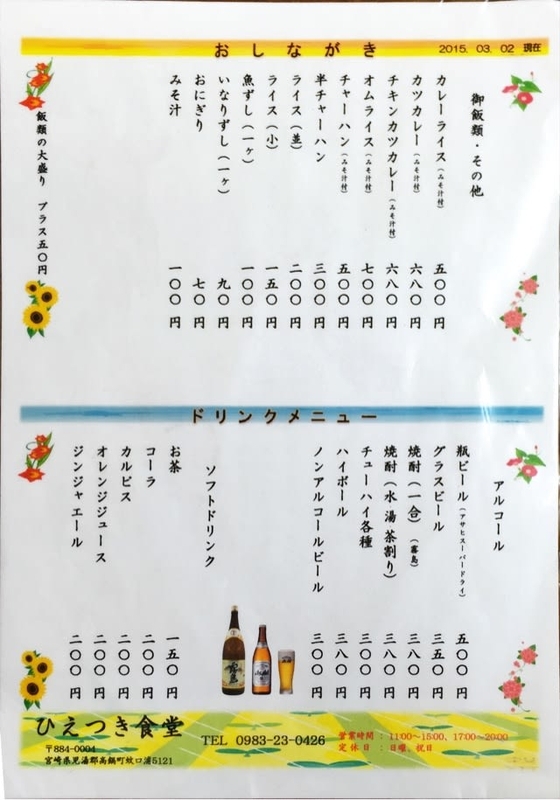 おしながき
2015. 03. 02 現在
御飯類・その他
カレーライス（みそ汁付） 五〇〇 円
カツカレー（みそ汁付） 六八〇 円
チキンカツカレー（みそ汁付） 六八〇 円
オムライス（みそ汁付） 七〇〇 円
チャーハン（みそ汁付） 五〇〇 円
半チャーハン 三〇〇 円
ライス（並） 二〇〇 円
ライス（小） 一五〇 円
魚ずし（一ヶ） 一〇〇 円
いなりずし（一ヶ） 九〇 円
おにぎり 七〇 円
みそ汁 一〇〇 円
飯類の大盛り プラス五〇円
ドリンクメニュー
アルコール
瓶ビール（アサヒスーパードライ） 五〇〇 円
グラスビール 三五〇 円
焼酎（一合）（霧島） 三八〇 円
焼酎（水 湯 茶割り） 三八〇 円
チューハイ各種 三〇〇 円
ハイボール 三八〇 円
ノンアルコールビール 三〇〇 円
ソフトドリンク
お茶 一五〇 円
コーラ 二〇〇 円
カルピス 二〇〇 円
オレンジジュース 二〇〇 円
ジンジャエール 二〇〇 円
霧島
Asahi
ひえつき食堂
〒884-0004
宮崎県児湯郡高鍋町蚊口浦5121
TEL 0983-23-0426
営業時間 : 11:00～15:00、17:00～20:00
定休日 : 日曜、祝日